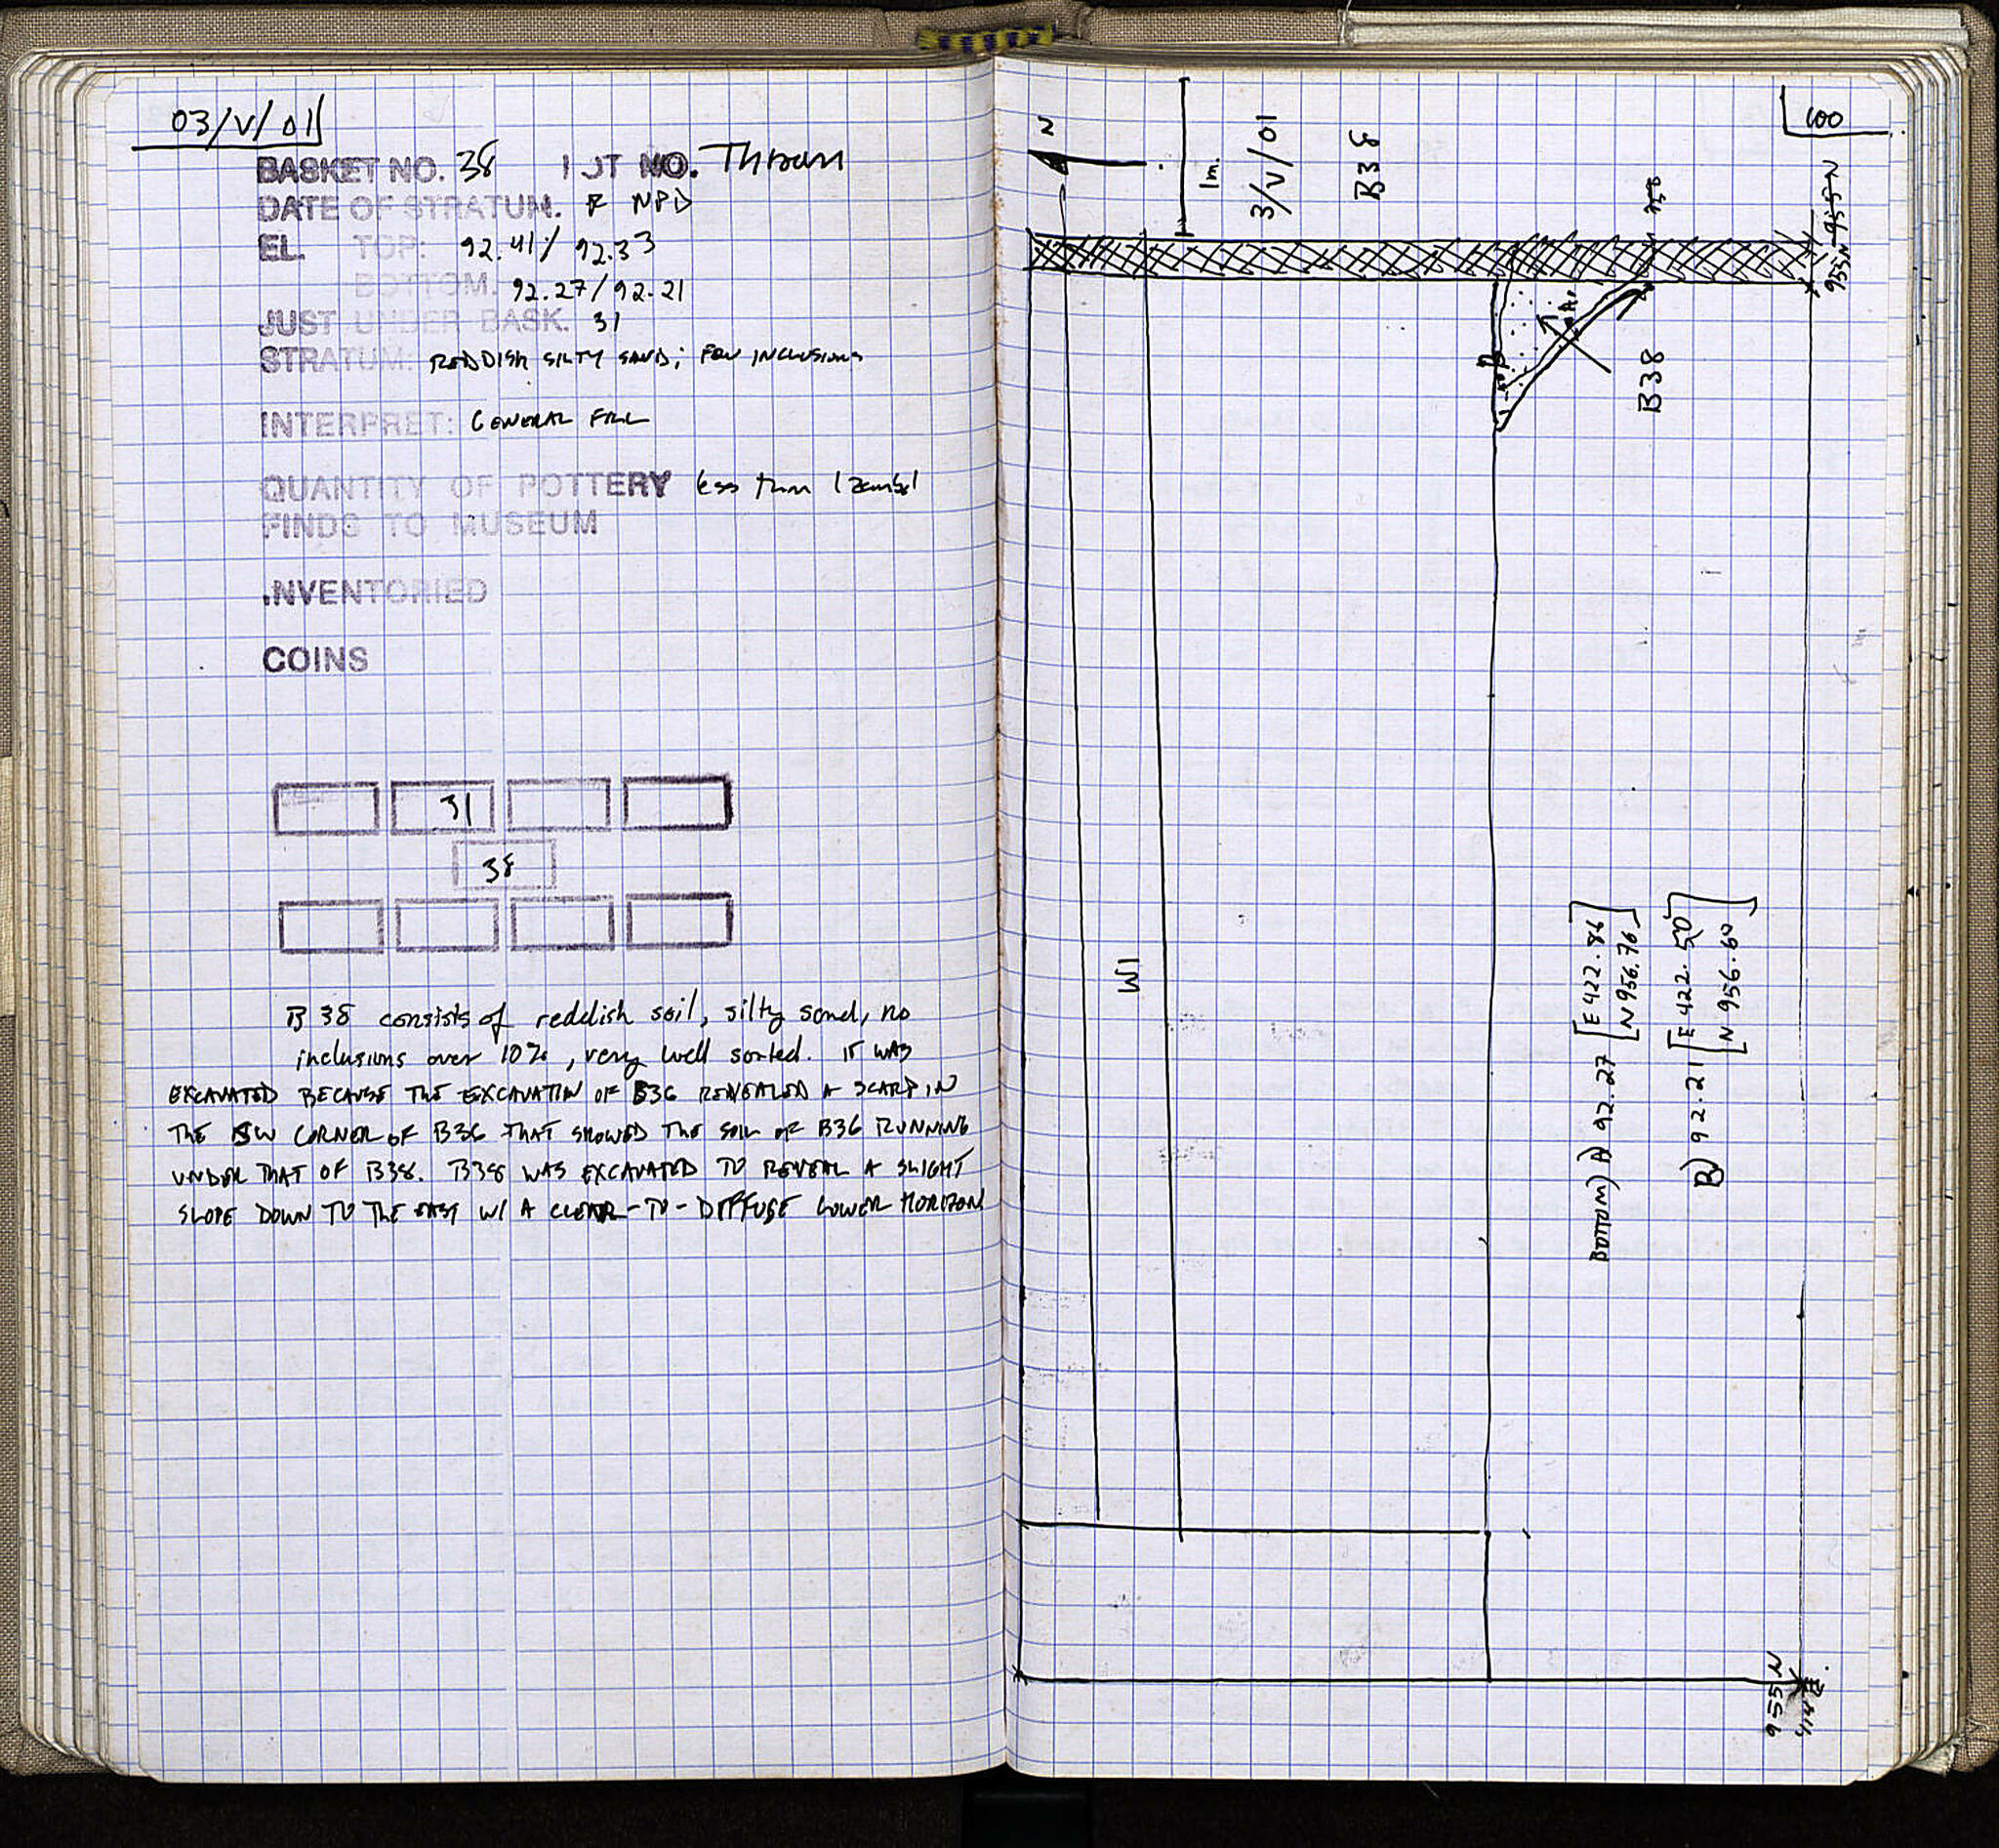 03/V/01
BASKET NO. 38 LOT NO. Thran
DATE OF STRATUM. F NPD
EL. TOP: 92.41/ 92.33
BOTTOM. 92.27/92.21
JUST UNDER BASK. 31
STRATUM: REDDISH SILTY SAND; FEW INCLUSIONS
INTERPRET: GENERAL FILL
QUANTITY OF POTTERY less than 1 zembil
FINDS TO MUSEUM
INVENTORIED
COINS
31
38
B 38 consists of reddish soil, silty sand, no
inclusions over 10%, very well sorted. IT WAS
EXCAVATED BECAUSE THE EXCAVATION OF B36 REVEALED A SCARP IN
THE SW CORNER OF B36 THAT SHOWED THE SOIL OF B36 RUNNING
UNDER THAT OF B38. B38 WAS EXCAVATED TO REVEAL A SLIGHT
SLOPE DOWN TO THE EAST W/ A CLEAR-TO-DIFFUSE LOWER HORIZON
100
1m.
3/V/01
B38
955 N
955 N
A
B
B38
1M
BOTTOM) A) 92.27 [E 422.86]
[N 956.76]
B) 92.21 [E 422.50]
[N 956.60]
955 N
414 E.